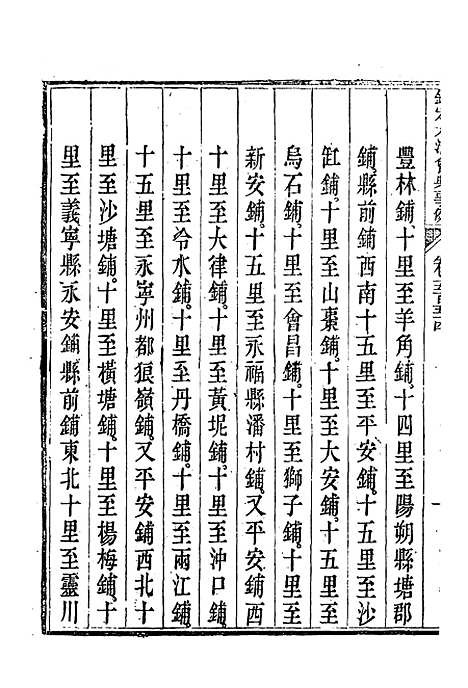 欽定大清會典事例 卷五百五十四
豐林鋪十里至羊角鋪十四里至陽朔縣塘郡
鋪縣前鋪西南十五里至平安鋪十五里至沙
缸鋪十里至山棗鋪十里至大安鋪十里至
烏石鋪十里至會昌鋪十里至獅子鋪十里至
新安鋪十五里至永福縣潘村鋪又平安鋪西
十里至大律鋪十里至黃坭鋪十里至沖口鋪
十里至冷水鋪十里至丹橋鋪十里至兩江鋪
十五里至永寧州都狼嶺鋪又平安鋪西北十
里至沙塘鋪十里至橫塘鋪十里至楊梅鋪十
里至義寧縣永安鋪縣前鋪東北十里至靈川